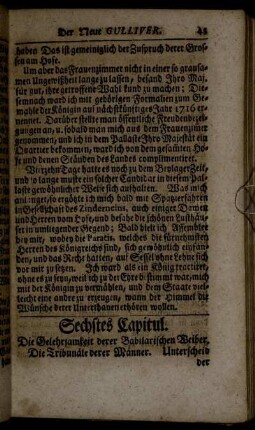 Der Neue GULLIVER. 43
haben Das ist gemeiniglich der Zuspruch derer Gros-
sen am Hofe.
Um aber das Frauenzimmer nicht in einer so grausa-
men Ungewißheit lange zu lassen, befand Ihro Maj.
für gut, ihre getroffene Wahl kund zu machen; Die-
semnach ward ich mit gehörigen Formalien zum Ge-
mahle der Königin auf nächstkünftiges Jahr 1716 er-
nennet. Darüber stellte man öffentliche Freudenbezei-
gungen an, u. sobald man mich aus dem Frauenzimer
genommen, und ich in dem Pallaste Ihro Majestät ein
Quartier bekommen, wurde ich von dem gesamten Ho-
fe und denen Ständen des Landes complimentiret.
Vierzehn Tage hatte es noch zu dem Beylager Zeit,
und so lange muste ein solcher Candidat in diesem Pal-
laste gewöhnlicher Weise sich aufhalten. Was mich
anlanget, so ergöhte ich mich bald mit Spazierfahren
in Gesellschaft des Zindernein, auch einiger Damen
und Herren vom Hofe, und besahe die schönen Lusthäu-
ser in umliegender Gegend; Bald hielt ich Assemblee
bey mir, wobey die welches die vornehmsten
Herren des Königreichs sind, sich gewöhnlich einfan-
den, und das Recht hatten, auf Sessel ohne Lehne sich
vor mir zu setzen. Ich ward als ein König tractiret,
ohne es zu seyn, weil ich zu der Ehre bestimmt war, mich
mit der Königin zu vermählen, und dem Staate viel-
leicht eine andre zu erzeugen, wann der Himmel die
Wünsche derer Unterthanen erhören wollen.
Sechstes Capitul.
Die Gelehrsamkeit derer Babilarischen Weiber,
Die Tribunäle derer Männer. Unterscheid
der